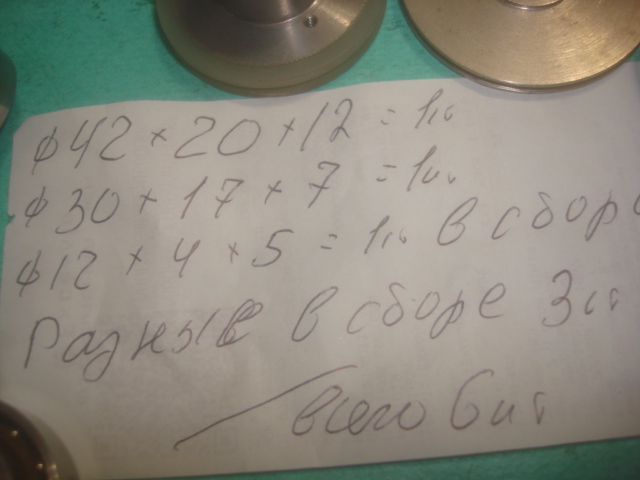 ф42 × 20 × 12 = 1ш.
ф30 × 17 × 7 = 1ш.
ф12 × 4 × 5 = 1ш. в сборе
Разные в сборе 3ш.
всего 6шт